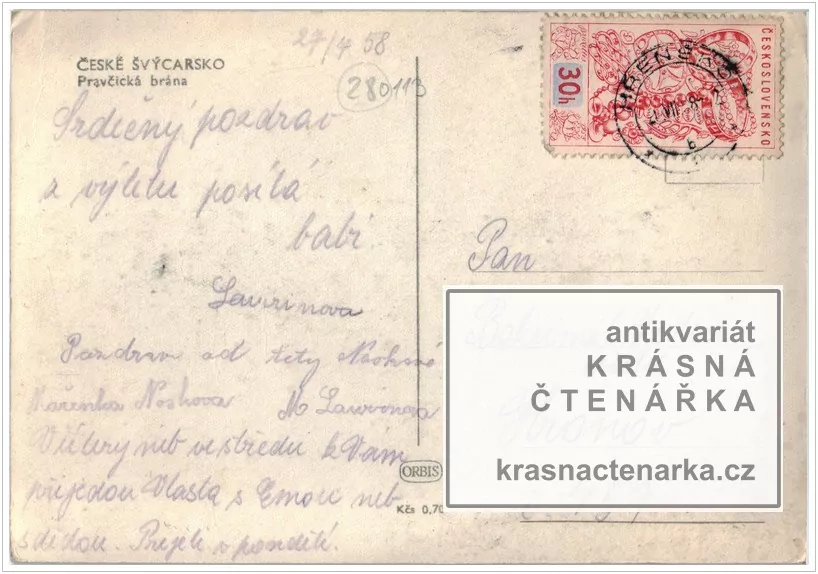 27/7 58
ČESKÉ ŠVÝCARSKO
Pravčická brána
280113
Srdečný pozdrav
z výletu posílá
babi
Laurinova
Pozdrav od tety Noskové
Mařenka Noskova M Laurinova
V úterý neb ve středu k Vám
přijedou Vlasta s Emou neb
s dědou. Přijeli v pondělí.
ČESKOSLOVENSKO
30h
HŘENSKO
b
Pan
antikvariát
KRÁSNÁ
ČTENÁŘKA
krasnactenarka.cz
ORBIS
Kčs 0,70